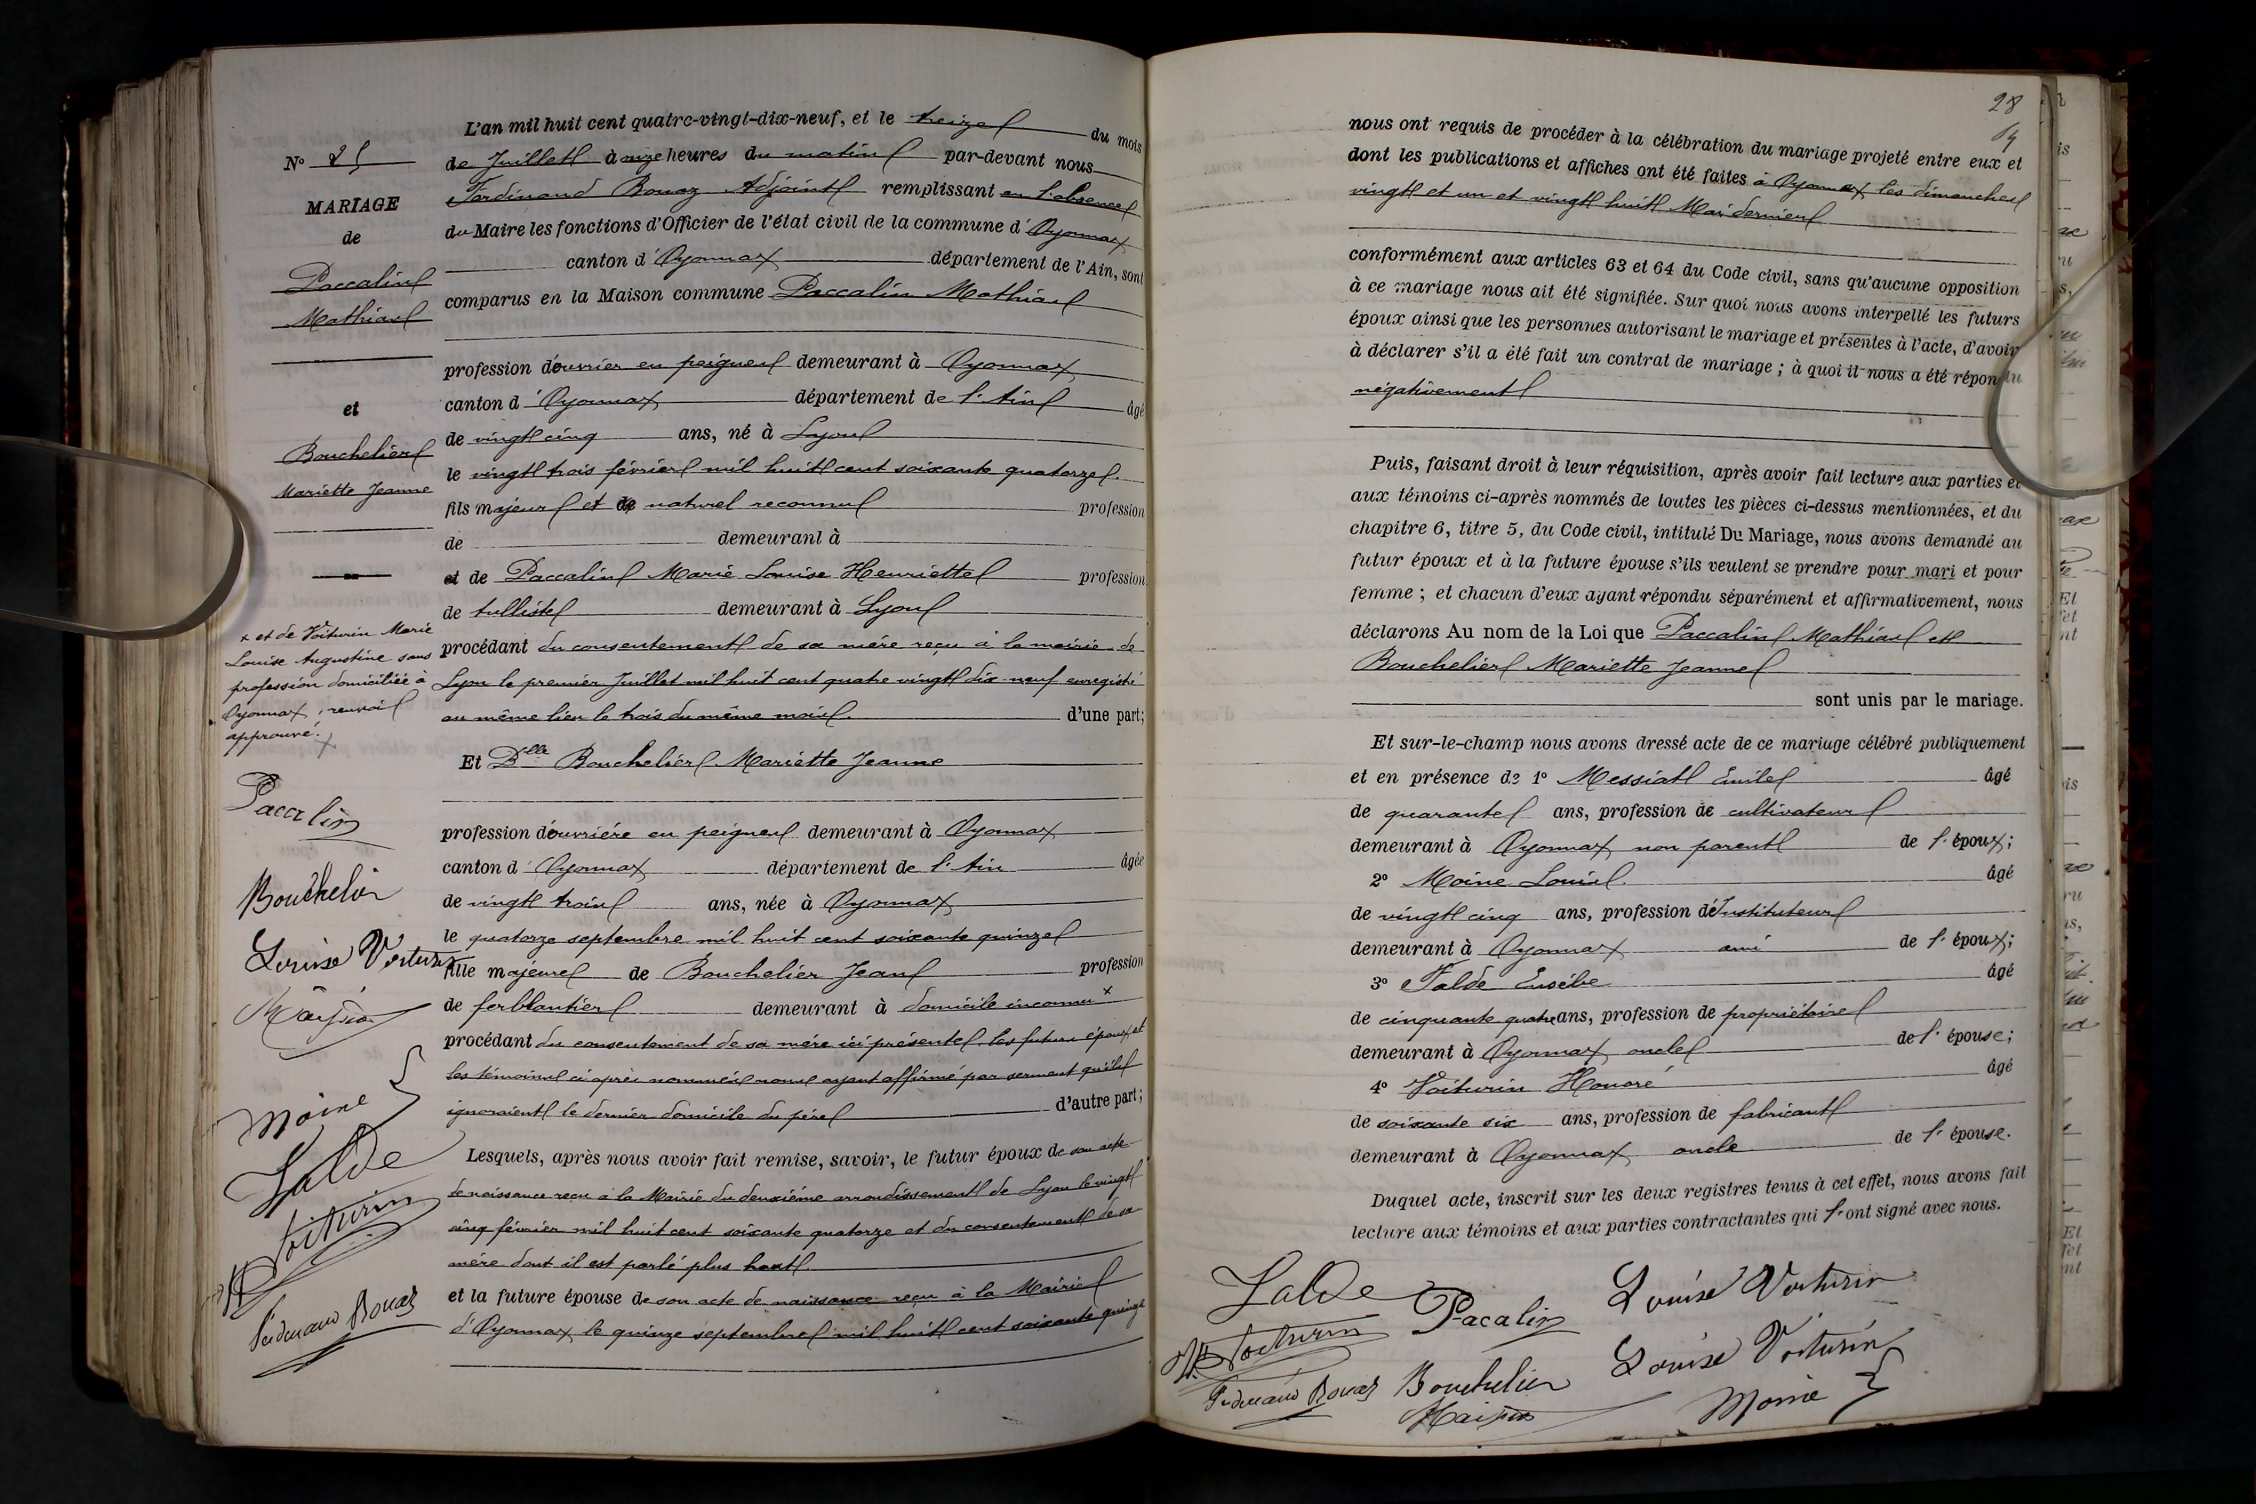 L'an mil huit cent quatre-vingt-dix-neuf, et le treize du mois
de Juillet à onze heures du matin par-devant nous
Ferdinand Bouaz Adjoint remplissant en l'absence
du Maire les fonctions d'Officier de l'état civil de la commune d'Oyonnax
canton d'Oyonnax département de l'Ain, sont
comparus en la Maison commune Paccalin Mathias
profession d'ouvrier en peignes demeurant à Oyonnax
canton d'Oyonnax département de l'Ain âgé
de vingt cinq ans, né à Lyon
le vingt trois février mil huit cent soixante quatorze
fils majeur et de naturel reconnu profession
de demeurant à
et de Paccalin Marie Louise Henriette profession
de tulliste demeurant à Lyon
procédant du consentement de sa mère reçu à la mairie de
Lyon le premier Juillet mil huit cent quatre vingt dix-neuf enregistré
au même lieu le trois du même mois. d'une part;
Et Dlle Bouchelier Mariette Jeanne
profession d'ouvrière en peignes demeurant à Oyonnax
canton d'Oyonnax département de l'Ain âgée
de vingt trois ans, née à Oyonnax
le quatorze septembre mil huit cent soixante quinze
fille majeure de Bouchelier Jean profession
de ferblantier demeurant à domicile inconnu x
procédant du consentement de sa mère ici présente les futurs époux et
les témoins ci après nommés nous ayant affirmé par serment qu'ils
ignoraient le dernier domicile du père d'autre part;
Lesquels, après nous avoir fait remise, savoir, le futur époux de son acte
de naissance reçu à la Mairie du deuxième arrondissement de Lyon le vingt
cinq février mil huit cent soixante quatorze et du consentement de sa
mère dont il est parlé plus haut.
et la future épouse de son acte de naissance reçu à la Mairie
d'Oyonnax le quinze septembre mil huit cent soixante quinze
N° 25
MARIAGE
de
Paccalin
Mathias
et
Bouchelier
Mariette Jeanne
x et de Voiturin Marie
Louise Augustine sans
profession domiciliée à
Oyonnax, renvoi
approuvé. x
Paccalin
Bouchelier
Louise Voiturin
Moine
Jalde
Voiturin
Ferdinand Bouaz
28
nous ont requis de procéder à la célébration du mariage projeté entre eux et
dont les publications et affiches ont été faites à Oyonnax les dimanches
vingt et un et vingt huit Mai dernier
conformément aux articles 63 et 64 du Code civil, sans qu'aucune opposition
à ce mariage nous ait été signifiée. Sur quoi nous avons interpellé les futurs
époux ainsi que les personnes autorisant le mariage et présentes à l'acte, d'avoir
à déclarer s'il a été fait un contrat de mariage; à quoi il nous a été répondu
négativement
Puis, faisant droit à leur réquisition, après avoir fait lecture aux parties et
aux témoins ci-après nommés de toutes les pièces ci-dessus mentionnées, et du
chapitre 6, titre 5, du Code civil, intitulé Du Mariage, nous avons demandé au
futur époux et à la future épouse s'ils veulent se prendre pour mari et pour
femme; et chacun d'eux ayant répondu séparément et affirmativement, nous
déclarons Au nom de la Loi que Paccalin Mathias et
Bouchelier Mariette Jeanne
sont unis par le mariage.
Et sur-le-champ nous avons dressé acte de ce mariage célébré publiquement
et en présence de 1° Messiat Emile âgé
de quarante ans, profession de cultivateur
demeurant à Oyonnax non parent de l'époux;
2° Moine Louis âgé
de vingt cinq ans, profession d'Instituteur
demeurant à Oyonnax ami de l'époux;
3° Jalde Eusèbe âgé
de cinquante quatre ans, profession de propriétaire
demeurant à Oyonnax oncle de l'épouse;
4° Voiturin Honoré âgé
de soixante six ans, profession de fabricant
demeurant à Oyonnax oncle de l'épouse.
Duquel acte, inscrit sur les deux registres tenus à cet effet, nous avons fait
lecture aux témoins et aux parties contractantes qui l'ont signé avec nous.
Jalde
Pacalin
Louise Voiturin
Voiturin
Louise Voiturin
Ferdinand Bouaz
Bouchelier
Moine